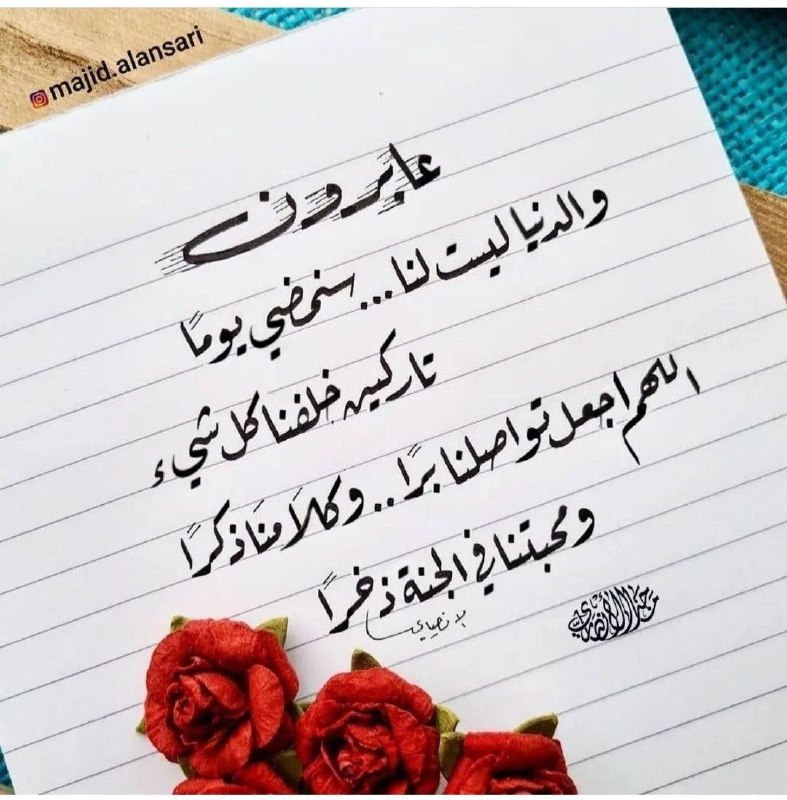 majid.alansari
عابرون
والدنيا ليست لنا... سنمضي يومًا
تاركين خلفنا كل شيء
اللهم اجعل تواصلنا برًا.. وكلامنا ذكرًا
ومحبتنا في الجنة ذخرًا